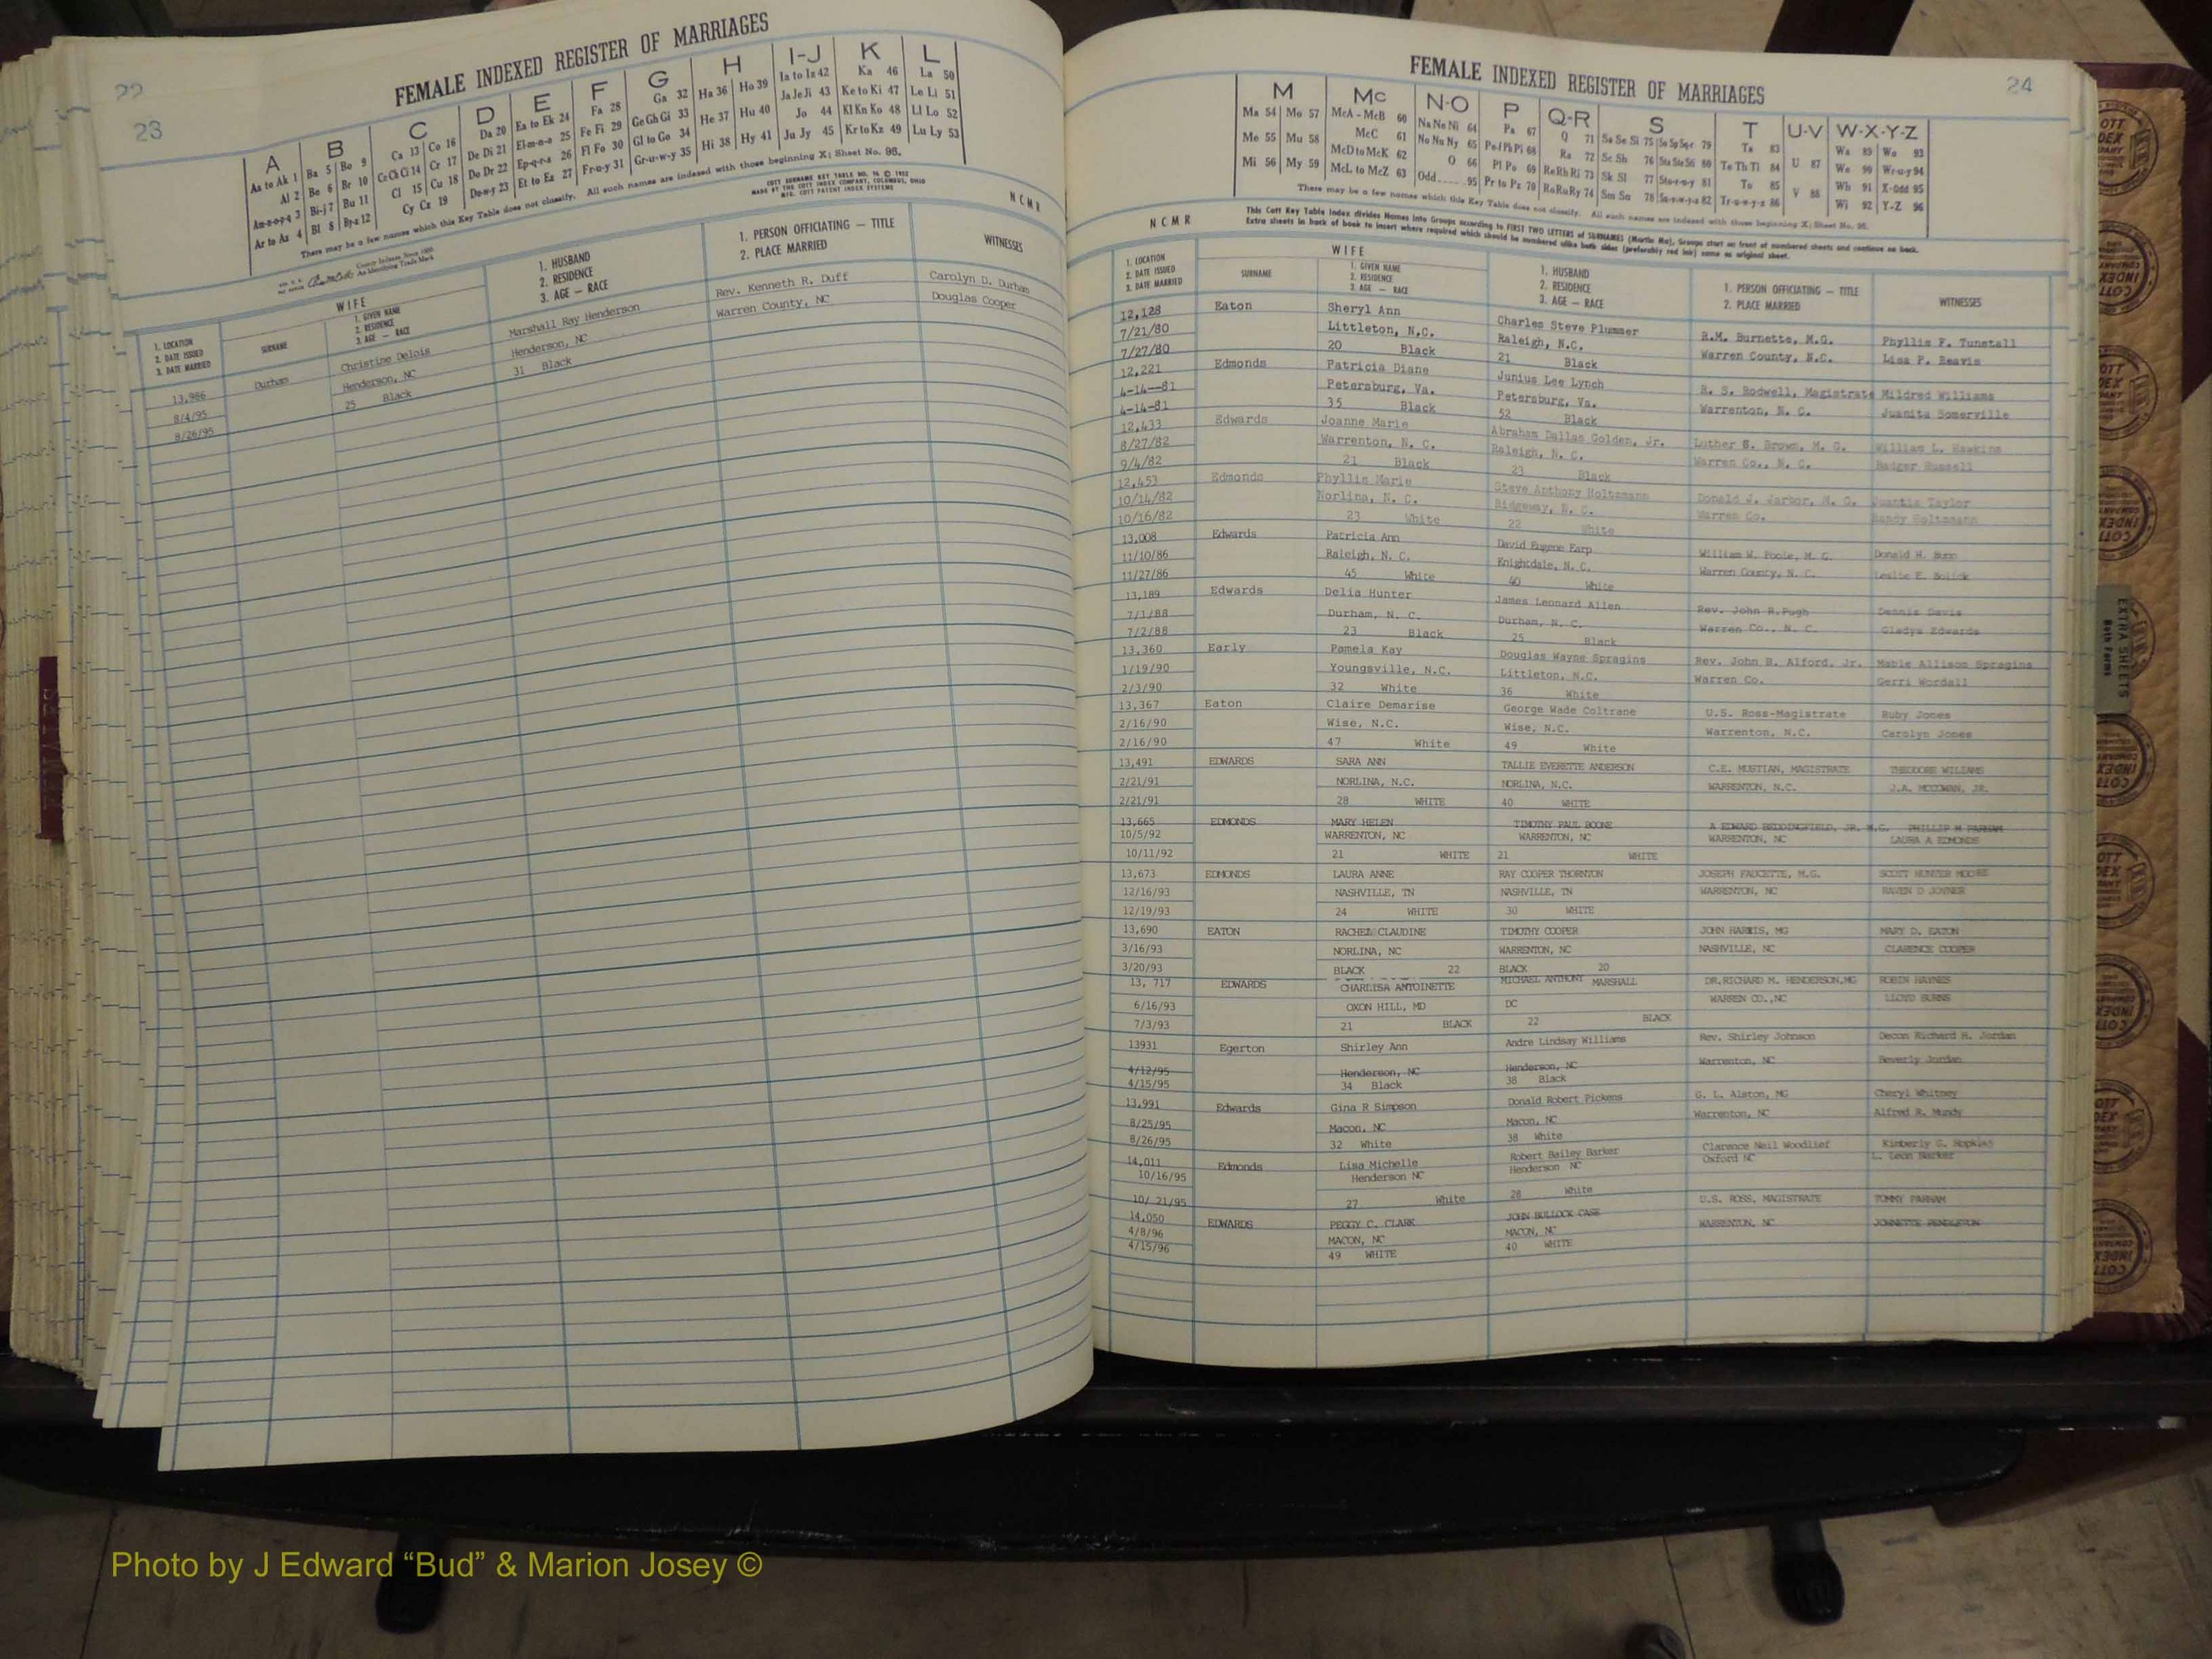 22
23
FEMALE INDEXED REGISTER OF MARRIAGES
A B C D E F G H I-J K L
Aa to Ak 1 Ba 5 Bo 9 Ca 13 Co 16 Da 20 Ea to Ek 24 Fa 28 Ga 32 Ha 36 Ho 39 Ia to Iz 42 Ka 46 La 50
Al 2 Be 6 Br 10 Ce Ch Ci 14 Cr 17 De Di 21 El-m-n-o 25 Fe Fi 29 Ge Gh Gi 33 He 37 Hu 40 Ja Je Ji 43 Ke to Ki 47 Le Li 51
Am-n-o-p-q 3 Bi-j 7 Bu 11 Cl 15 Cu 18 Do Dr 22 Ep-q-r-s 26 Fl Fo 30 Gl to Go 34 Hi 38 Hy 41 Jo 44 Kl Kn Ko 48 Ll Lo 52
Ar to Az 4 Bl 8 By-z 12 Cy Cz 19 Du-w-y 23 Et to Ez 27 Fr-u-y 31 Gr-u-w-y 35 Ju Jy 45 Kr to Kz 49 Lu Ly 53
There may be a few names which this Key Table does not classify. All such names are indexed with those beginning X; Sheet No. 96.
COTT SURNAME KEY TABLE NO. 96 © 1952
MADE BY THE COTT INDEX COMPANY, COLUMBUS, OHIO
MFG. COTT PATENT INDEX SYSTEMS
N C M R
County Indexes Since 1888
As Identifying Trade Mark
1. LOCATION
2. DATE ISSUED
3. DATE MARRIED
WIFE
SURNAME
1. GIVEN NAME
2. RESIDENCE
3. AGE — RACE
1. HUSBAND
2. RESIDENCE
3. AGE — RACE
1. PERSON OFFICIATING — TITLE
2. PLACE MARRIED
WITNESSES
13,986 Durham Christine Delois Marshall Ray Henderson Rev. Kenneth R. Duff Carolyn D. Durham
8/4/95 Henderson, NC Henderson, NC Warren County, NC Douglas Cooper
8/26/95 25 Black 31 Black
FEMALES
24
FEMALE INDEXED REGISTER OF MARRIAGES
M Mc N-O P Q-R S T U-V W-X-Y-Z
Ma 54 Mo 57 McA - McB 60 Na Ne Ni 64 Pa 67 Q 71 Sa Se Si 75 So Sp Sq-r 79 Ta 83 Wa 89 Wo 93
Me 55 Mu 58 McC 61 No Nu Ny 65 Pe-f Ph Pi 68 Ra 72 Sc Sh 76 Sta Ste Sti 80 Te Th Ti 84 U 87 We 90 Wr-u-y 94
Mi 56 My 59 McD to McK 62 O 66 Pl Po 69 Re Rh Ri 73 Sk Sl 77 Sto-r-u-y 81 To 85 V 88 Wh 91 X-Odd 95
McL to McZ 63 Odd 95 Pr to Pz 70 Ro Ru Ry 74 Sm Sn 78 Su-v-w-y-z 82 Tr-u-w-y-z 86 Wi 92 Y-Z 96
There may be a few names which this Key Table does not classify. All such names are indexed with those beginning X; Sheet No. 96.
This Cott Key Table Index divides Names into Groups according to FIRST TWO LETTERS of SURNAMES (Martin Ma), Groups start on front of numbered sheets and continue on back.
Extra sheets in back of book to insert where required which should be numbered alike both sides (preferably red ink) same as original sheet.
N C M R
1. LOCATION
2. DATE ISSUED
3. DATE MARRIED
WIFE
SURNAME
1. GIVEN NAME
2. RESIDENCE
3. AGE — RACE
1. HUSBAND
2. RESIDENCE
3. AGE — RACE
1. PERSON OFFICIATING — TITLE
2. PLACE MARRIED
WITNESSES
12,128 Eaton Sheryl Ann Charles Steve Plummer R.M. Burnette, M.G. Phyllis F. Tunstall
7/21/80 Littleton, N.C. Raleigh, N.C. Warren County, N.C. Lisa P. Reavis
7/27/80 20 Black 21 Black
12,221 Edmonds Patricia Diane Junius Lee Lynch R. S. Rodwell, Magistrate Mildred Williams
4-14--81 Petersburg, Va. Petersburg, Va. Warrenton, N. C. Juanita Somerville
4-14-81 35 Black 52 Black
12,433 Edwards Joanne Marie Abraham Dallas Golden, Jr. Luther S. Brown, M. G. William L. Hawkins
8/27/82 Warrenton, N. C. Raleigh, N. C. Warren Co., N. C. Badger Russell
9/4/82 21 Black 23 Black
12,453 Edmonds Phyllis Marie Steve Anthony Holtzmann Donald J. Jarbor, M. G. Juantia Taylor
10/14/82 Norlina, N. C. Ridgeway, N. C. Warren Co. Sandy Holtzmann
10/16/82 23 White 22 White
13,008 Edwards Patricia Ann David Eugene Earp William W. Poole, M. G. Donald H. Bunn
11/10/86 Raleigh, N. C. Knightdale, N. C. Warren County, N. C. Leslie E. Bolick
11/27/86 45 White 40 White
13,189 Edwards Delia Hunter James Leonard Allen Rev. John R.Pugh Dennis Davis
7/1/88 Durham, N. C. Durham, N. C. Warren Co., N. C. Gladys Edwards
7/2/88 23 Black 25 Black
13,360 Early Pamela Kay Douglas Wayne Spragins Rev. John B. Alford, Jr. Mable Allison Spragins
1/19/90 Youngsville, N.C. Littleton, N.C. Warren Co. Gerri Wordall
2/3/90 32 White 36 White
13,367 Eaton Claire Demarise George Wade Coltrane U.S. Ross-Magistrate Ruby Jones
2/16/90 Wise, N.C. Wise, N.C. Warrenton, N.C. Carolyn Jones
2/16/90 47 White 49 White
13,491 EDWARDS SARA ANN TALLIE EVERETTE ANDERSON C.E. MUSTIAN, MAGISTRATE THEODORE WILLIAMS
2/21/91 NORLINA, N.C. NORLINA, N.C. WARRENTON, N.C. J.A. MCCOWAN, JR.
2/21/91 28 WHITE 40 WHITE
13,665 EDMONDS MARY HELEN TIMOTHY PAUL BOONE A EDWARD BEDDINGFIELD, JR. M.G. PHILLIP M PARHAM
10/5/92 WARRENTON, NC WARRENTON, NC WARRENTON, NC LAURA A EDMONDS
10/11/92 21 WHITE 21 WHITE
13,673 EDMONDS LAURA ANNE RAY COOPER THORNTON JOSEPH FAUCETTE, M.G. SCOTT HUNTER MOORE
12/16/93 NASHVILLE, TN NASHVILLE, TN WARRENTON, NC RAVEN D JOYNER
12/19/93 24 WHITE 30 WHITE
13,690 EATON RACHEL CLAUDINE TIMOTHY COOPER JOHN HARRIS, MG MARY D. EATON
3/16/93 NORLINA, NC WARRENTON, NC NASHVILLE, NC CLARENCE COOPER
3/20/93 BLACK 22 BLACK 20
13, 717 EDWARDS CHARLISA ANTOINETTE MICHAEL ANTHONY MARSHALL DR.RICHARD M. HENDERSON,MG ROBIN HAYNES
6/16/93 OXON HILL, MD DC WARREN CO.,NC LLOYD BURNS
7/3/93 21 BLACK 22 BLACK
13931 Egerton Shirley Ann Andre Lindsay Williams Rev. Shirley Johnson Decon Richard H. Jordan
4/12/95 Henderson, NC Henderson, NC Warrenton, NC Beverly Jordan
4/15/95 34 Black 38 Black
13,991 Edwards Gina R Simpson Donald Robert Pickens G. L. Alston, MG Cheryl Whitney
8/25/95 Macon, NC Macon, NC Warrenton, NC Alfred R. Mundy
8/26/95 32 White 38 White
14,011 Edmonds Lisa Michelle Robert Bailey Barker Clarence Neil Woodlief Kimberly G. Hopkins
10/16/95 Henderson NC Henderson NC Oxford NC L. Leon Barker
10/ 21/95 27 White 28 White
14,050 EDWARDS PEGGY C. CLARK JOHN BULLOCK CASE U.S. ROSS, MAGISTRATE TOMMY PARHAM
4/8/96 MACON, NC MACON, NC WARRENTON, NC JOHNETTE PENDLETON
4/15/96 49 WHITE 40 WHITE
EXTRA SHEETS
Both Forms
Photo by J Edward “Bud” & Marion Josey ©